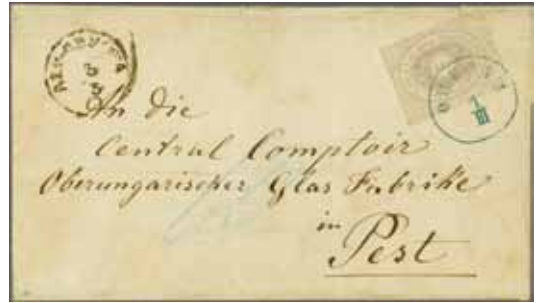 An die
Central Comptoir
Oberungarischer Glas Fabrike
in
Pest
1
III